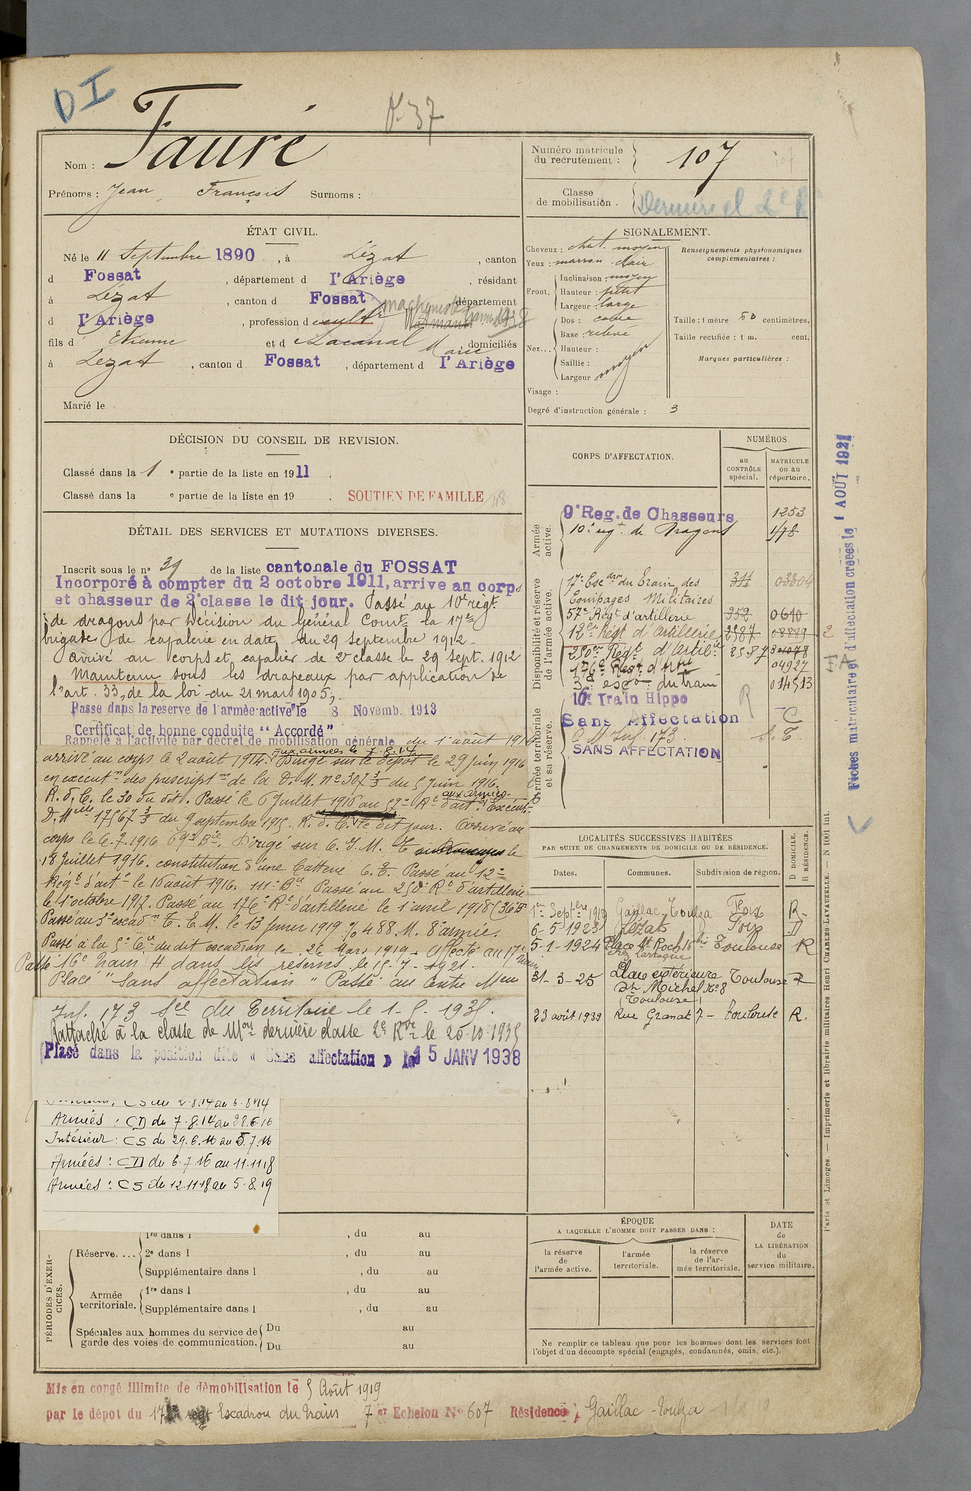 DI
Nom : Fauré
Prénoms : Jean François Surnoms :
Numéro matricule du recrutement : 107
Classe de mobilisation . Dernière cl 2e R
ÉTAT CIVIL.
Né le 11 Septembre 1890 , à Lézat , canton
d Fossat , département d l'Ariège , résidant
à Lézat , canton d Fossat , département
d l'Ariège , profession d cultr
fils d Etienne et d Lacanal Marie domiciliés
à Lézat , canton d Fossat , département d l'Ariège
Marié le
SIGNALEMENT.
Cheveux : chat. moyen
Yeux : marron clair
Front. Inclinaison moyen
Hauteur : petit
Largeur : large
Nez... Dos : cave
Base : relevé
Hauteur :
Saillie : moyen
Largeur
Visage :
Renseignements physionomiques complémentaires :
Taille : 1 mètre 50 centimètres.
Taille rectifiée : 1 m. cent.
Marques particulières :
Degré d'instruction générale : 3
DÉCISION DU CONSEIL DE REVISION.
Classé dans la 1 e partie de la liste en 1911 .
Classé dans la e partie de la liste en 19 . SOUTIEN DE FAMILLE
DÉTAIL DES SERVICES ET MUTATIONS DIVERSES.
Inscrit sous le n° 39 de la liste cantonale du FOSSAT
Incorporé à compter du 2 octobre 1911, arrive au corps
et chasseur de 2e classe le dit jour. Passé au 10e régt
de dragons par décision du Général Comt la 17e
brigade de cavalerie en date du 29 septembre 1912.
Arrivé au corps et cavalier de 2e classe le 29 sept. 1912
Maintenu sous les drapeaux par application de
l'art. 33, de la loi du 21 mars 1905,
Passé dans la réserve de l'armée active le 8 Novemb. 1913
Certificat de bonne conduite "Accordé"
Rappelé à l'activité par décret de mobilisation générale du 1er août 1914
arrivé au corps le 2 août 1914. Aux armées le 7.8.14 Dirigé sur le dépôt le 29 juin 1916
en exécutn des prescriptns de la D. M. du 5 juin 1916.
R. d. C. le 30 du dit. Passé le 6 juillet 1916 au 57e Rt d'art. aux armées Exécut.
D. Melle 17567 3/3 du 9 septembre 1915. R. d. C. le dit jour. Arrivé au
corps le 6.7.1916 Dirigé sur C.I.M. le
18 juillet 1916. constitution d'une batterie Passé au 12e
Régt d'artie le 16 août 1916. 111e Bie Passé au 250e Rt d'artillerie
le 1er octobre 1917. Passé au 176e Rt d'artillerie le 1er avril 1918
Passé au 3e escadn T. E. M. le 13 janvier 1919 M. 8e armée.
Passé à la 5e Cie du dit escadron le 26 Mars 1919. Affecté au 17e train
Passé 16e train H dans les réserves le 15-7-1921.
Placé "Sans affectation" Passé au Centre Mem
Inf. 173 Sec du Territoire le 1-5-1935.
Rattaché à la classe de Mon dernière classe 2e Rve le 25-10-1935
Placé dans la position dite « Sans affectation » le 15 JANV 1938
CS du 2.8.14 au 6.8.14
Armées : CD du 7.8.14 au 28.6.16
Intérieur : CS du 29.6.16 au 5.7.16
Armées : CD du 6.7.16 au 11.11.18
Armées : CS du 12.11.18 au 5.8.19
CORPS D'AFFECTATION.
NUMÉROS
au CONTRÔLE spécial.
MATRICULE ou au répertoire.
Armée active.
9e Reg. de Chasseurs 1253
10e régt de Dragons 178
Disponibilité et réserve de l'armée active.
17e Esc. du Train des Equipages Militaires 311 03304
57e Régt d'artillerie 352 0640
12e Régt d'artillerie 2387
250e Régt d'Artillie 2587
176e Régt d'Art 04927
3e escon du train 014513
16e Train Hippo
Armée territoriale et sa réserve.
Sans Affectation C
C M Inf. 173. S. T.
SANS AFFECTATION
LOCALITÉS SUCCESSIVES HABITÉES
PAR SUITE DE CHANGEMENTS DE DOMICILE OU DE RÉSIDENCE.
Dates. Communes. Subdivision de région. D DOMICILE. R RÉSIDENCE.
1er Septbre 1919 Gaillac Toulza Foix R
6-5-1923 Lézat Foix D
5-1-1924 Place St Roch Toulouse R
31-3-25 Place extérieure St Michel n° 8 (Toulouse) Toulouse R
23 août 1939 Rue Granat 7 - Toulouse R.
PÉRIODES D'EXERCICES.
1re dans l , du au
Réserve.... 2e dans l , du au
Supplémentaire dans l , du au
Armée territoriale. 1re dans l , du au
Supplémentaire dans l , du au
Spéciales aux hommes du service de garde des voies de communication. Du au
Du au
ÉPOQUE
A LAQUELLE L'HOMME DOIT PASSER DANS :
la réserve de l'armée active.
l'armée territoriale.
la réserve de l'armée territoriale.
DATE de LA LIBÉRATION du service militaire.
Ne remplir ce tableau que pour les hommes dont les services font
l'objet d'un décompte spécial (engagés, condamnés, omis, etc.).
Mis en congé illimité de démobilisation le 5 Août 1919
par le dépôt du 17e Escadron du train 7er Echelon N° 607 Résidence, Gaillac-Toulza
Fiches matriculaire et d'affectation créées le 1 AOUT 1921
Paris et Limoges. — Imprimerie et librairie militaires Henri CHARLES-LAVAUZELLE. — N° 1001 int.